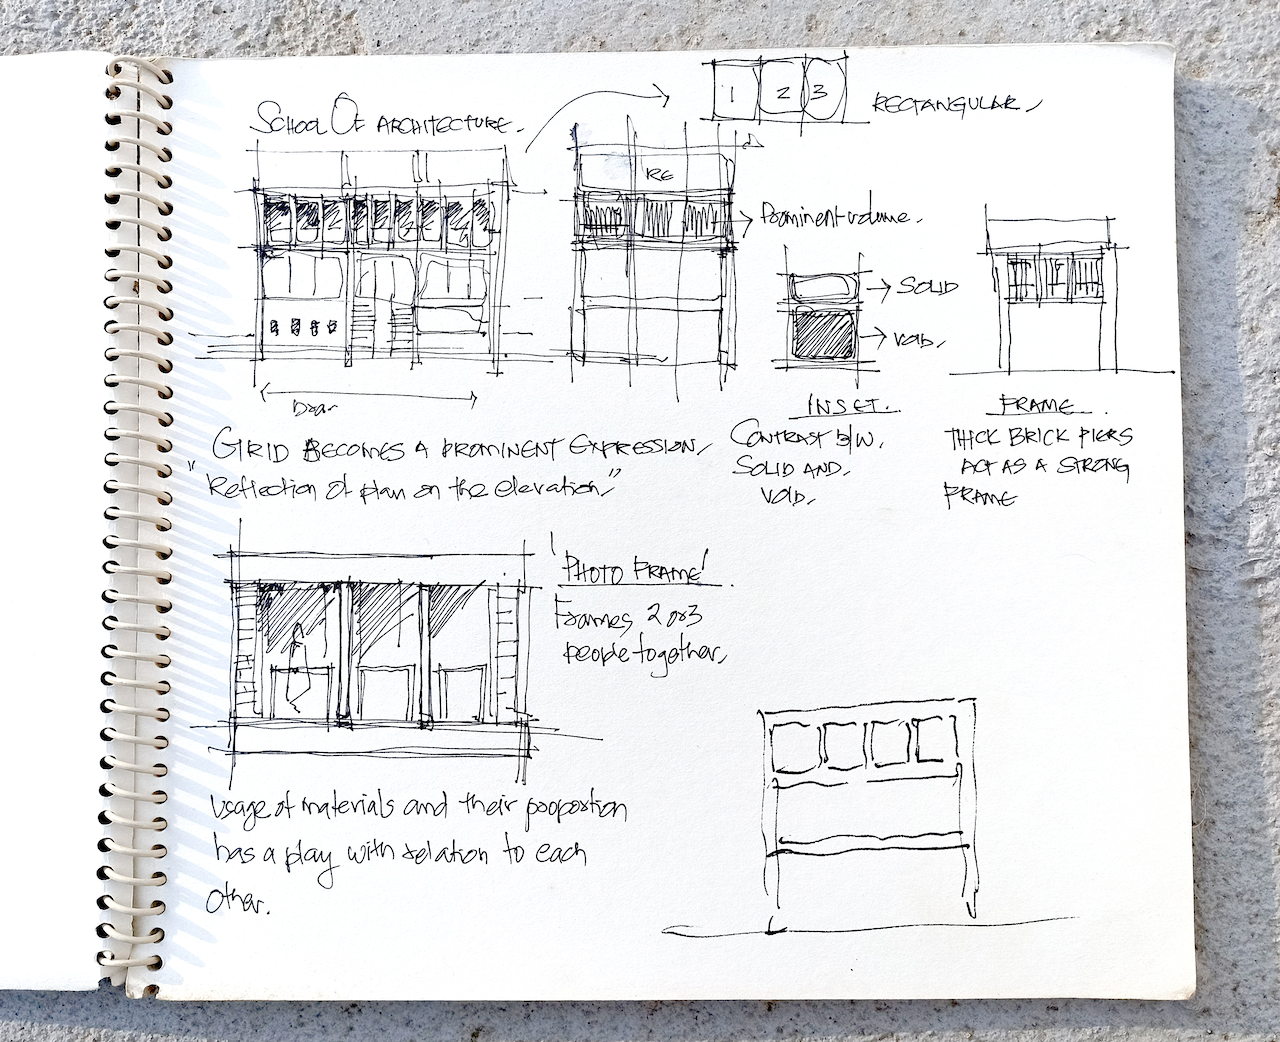 SCHOOL OF ARCHITECTURE.
1 2 3
RECTANGULAR
RE
Prominent volume.
SOLID
VOID.
INSET.
CONTRAST B/W.
SOLID AND.
VOID.
FRAME.
THICK BRICK PIERS
ACT AS A STRONG
FRAME
GRID BECOMES A PROMINENT EXPRESSION,
"Reflection Of plan on the elevation,"
'PHOTO FRAME'
Frames 2 or 3
people together,
Usage of materials and their proportion
has a play with relation to each
other.